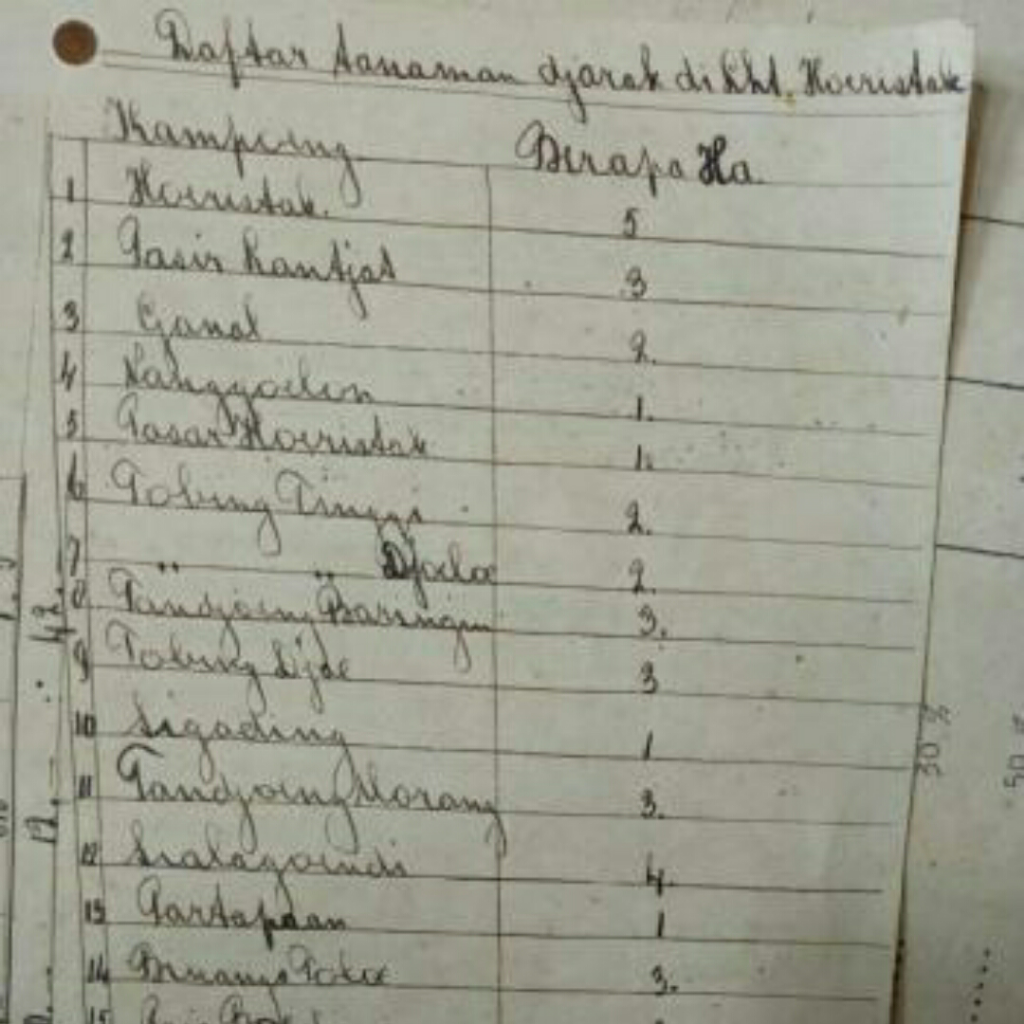 Daftar tanaman djarak di Lht. Hoeristak
Kampoeng Berapa Ha.
1 Hoeristak. 5
2 Pasir Lantjat 3
3 Ganal 2.
4 Langgoelon 1.
5 Pasar Hoeristak 1.
6 Tobing Tinggi 2.
7 " " Djoeloe 2.
8 Tandjoeng Baringin 3.
9 Tobing Djae 3
10 Sigading 1
11 Tandjoeng Morang 3.
12 Sialagoendi 4.
13 Partapaan 1
14 Binanga Toloe 3.
15
42.
12.
30 %
50 %